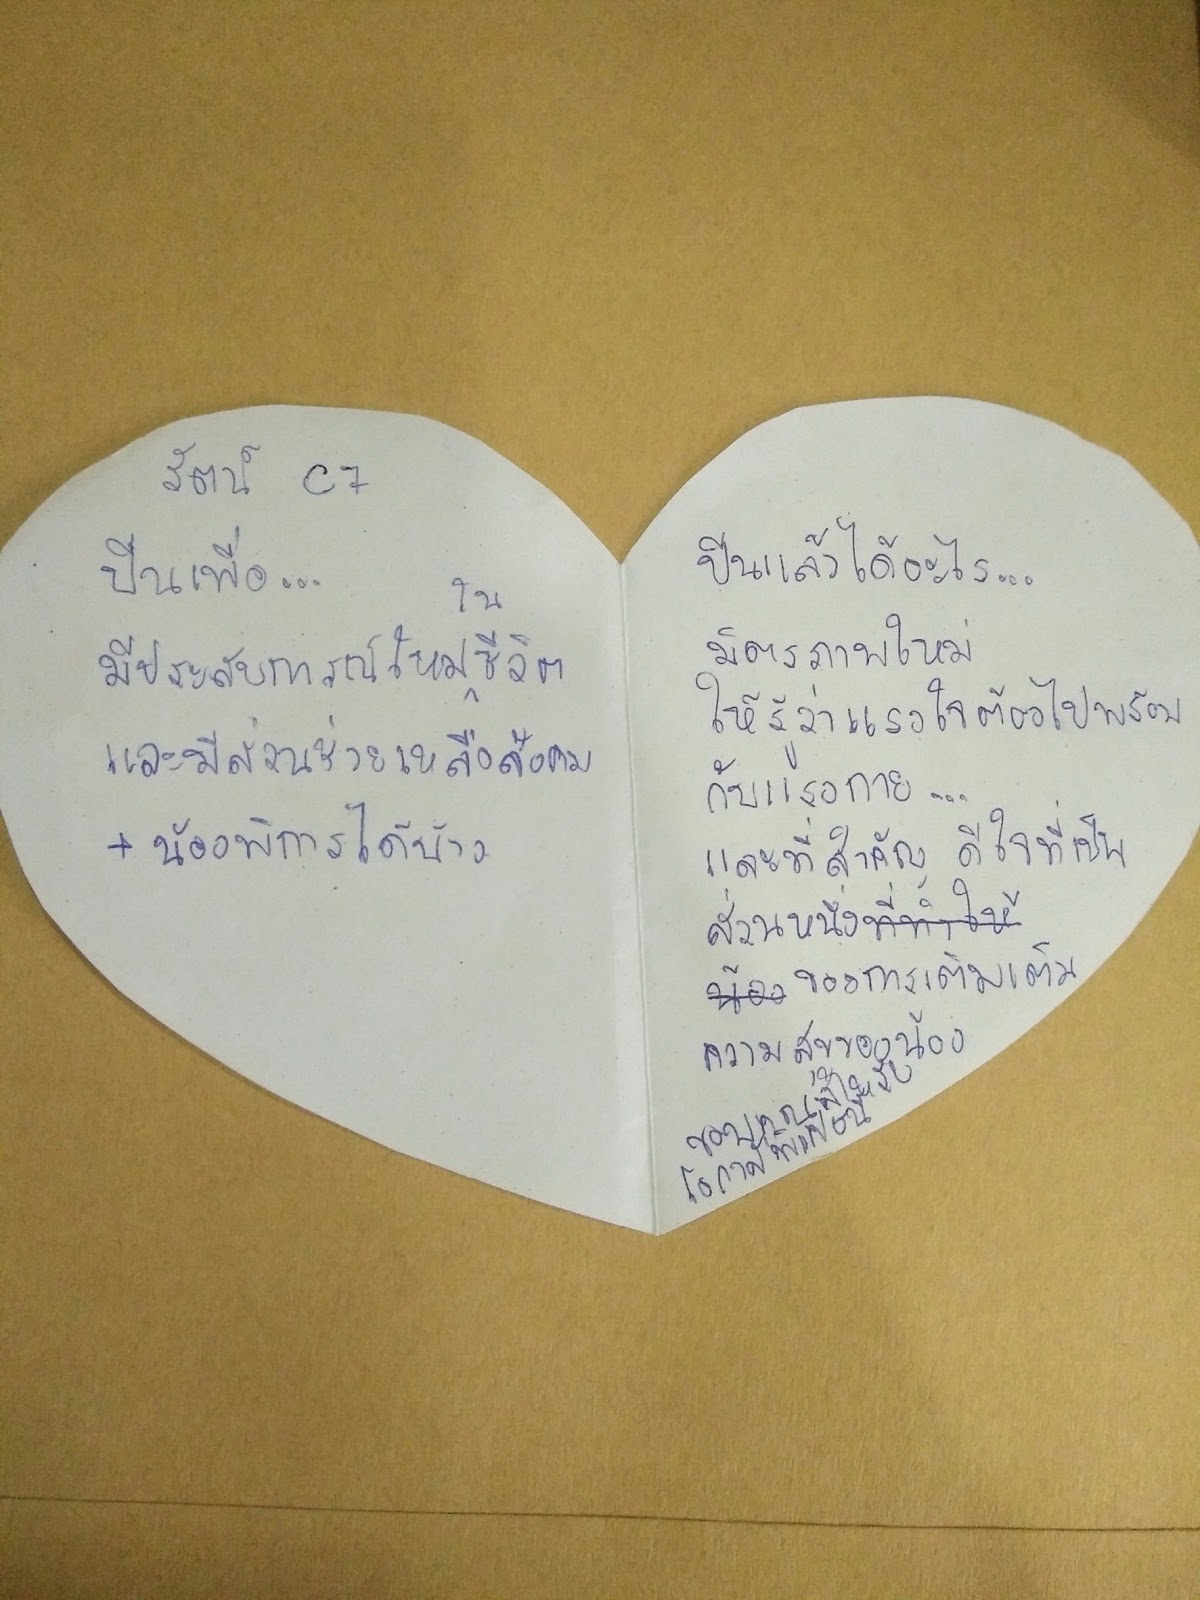 รัตน์ C7
ปั่นเพื่อ...
มีประสบการณ์ใหม่ในชีวิต
และมีส่วนช่วยเหลือสังคม
+ น้องพิการได้บ้าง
ปั่นแล้วได้อะไร...
มิตรภาพใหม่
ให้รู้ว่าแรงใจต้องไปพร้อม
กับแรงกาย...
และที่สำคัญ ดีใจที่เป็น
ส่วนหนึ่งที่ทำให้
น้อง ของการเติมเต็ม
ความสุขของน้อง
ขอบคุณสำหรับ
โอกาสที่